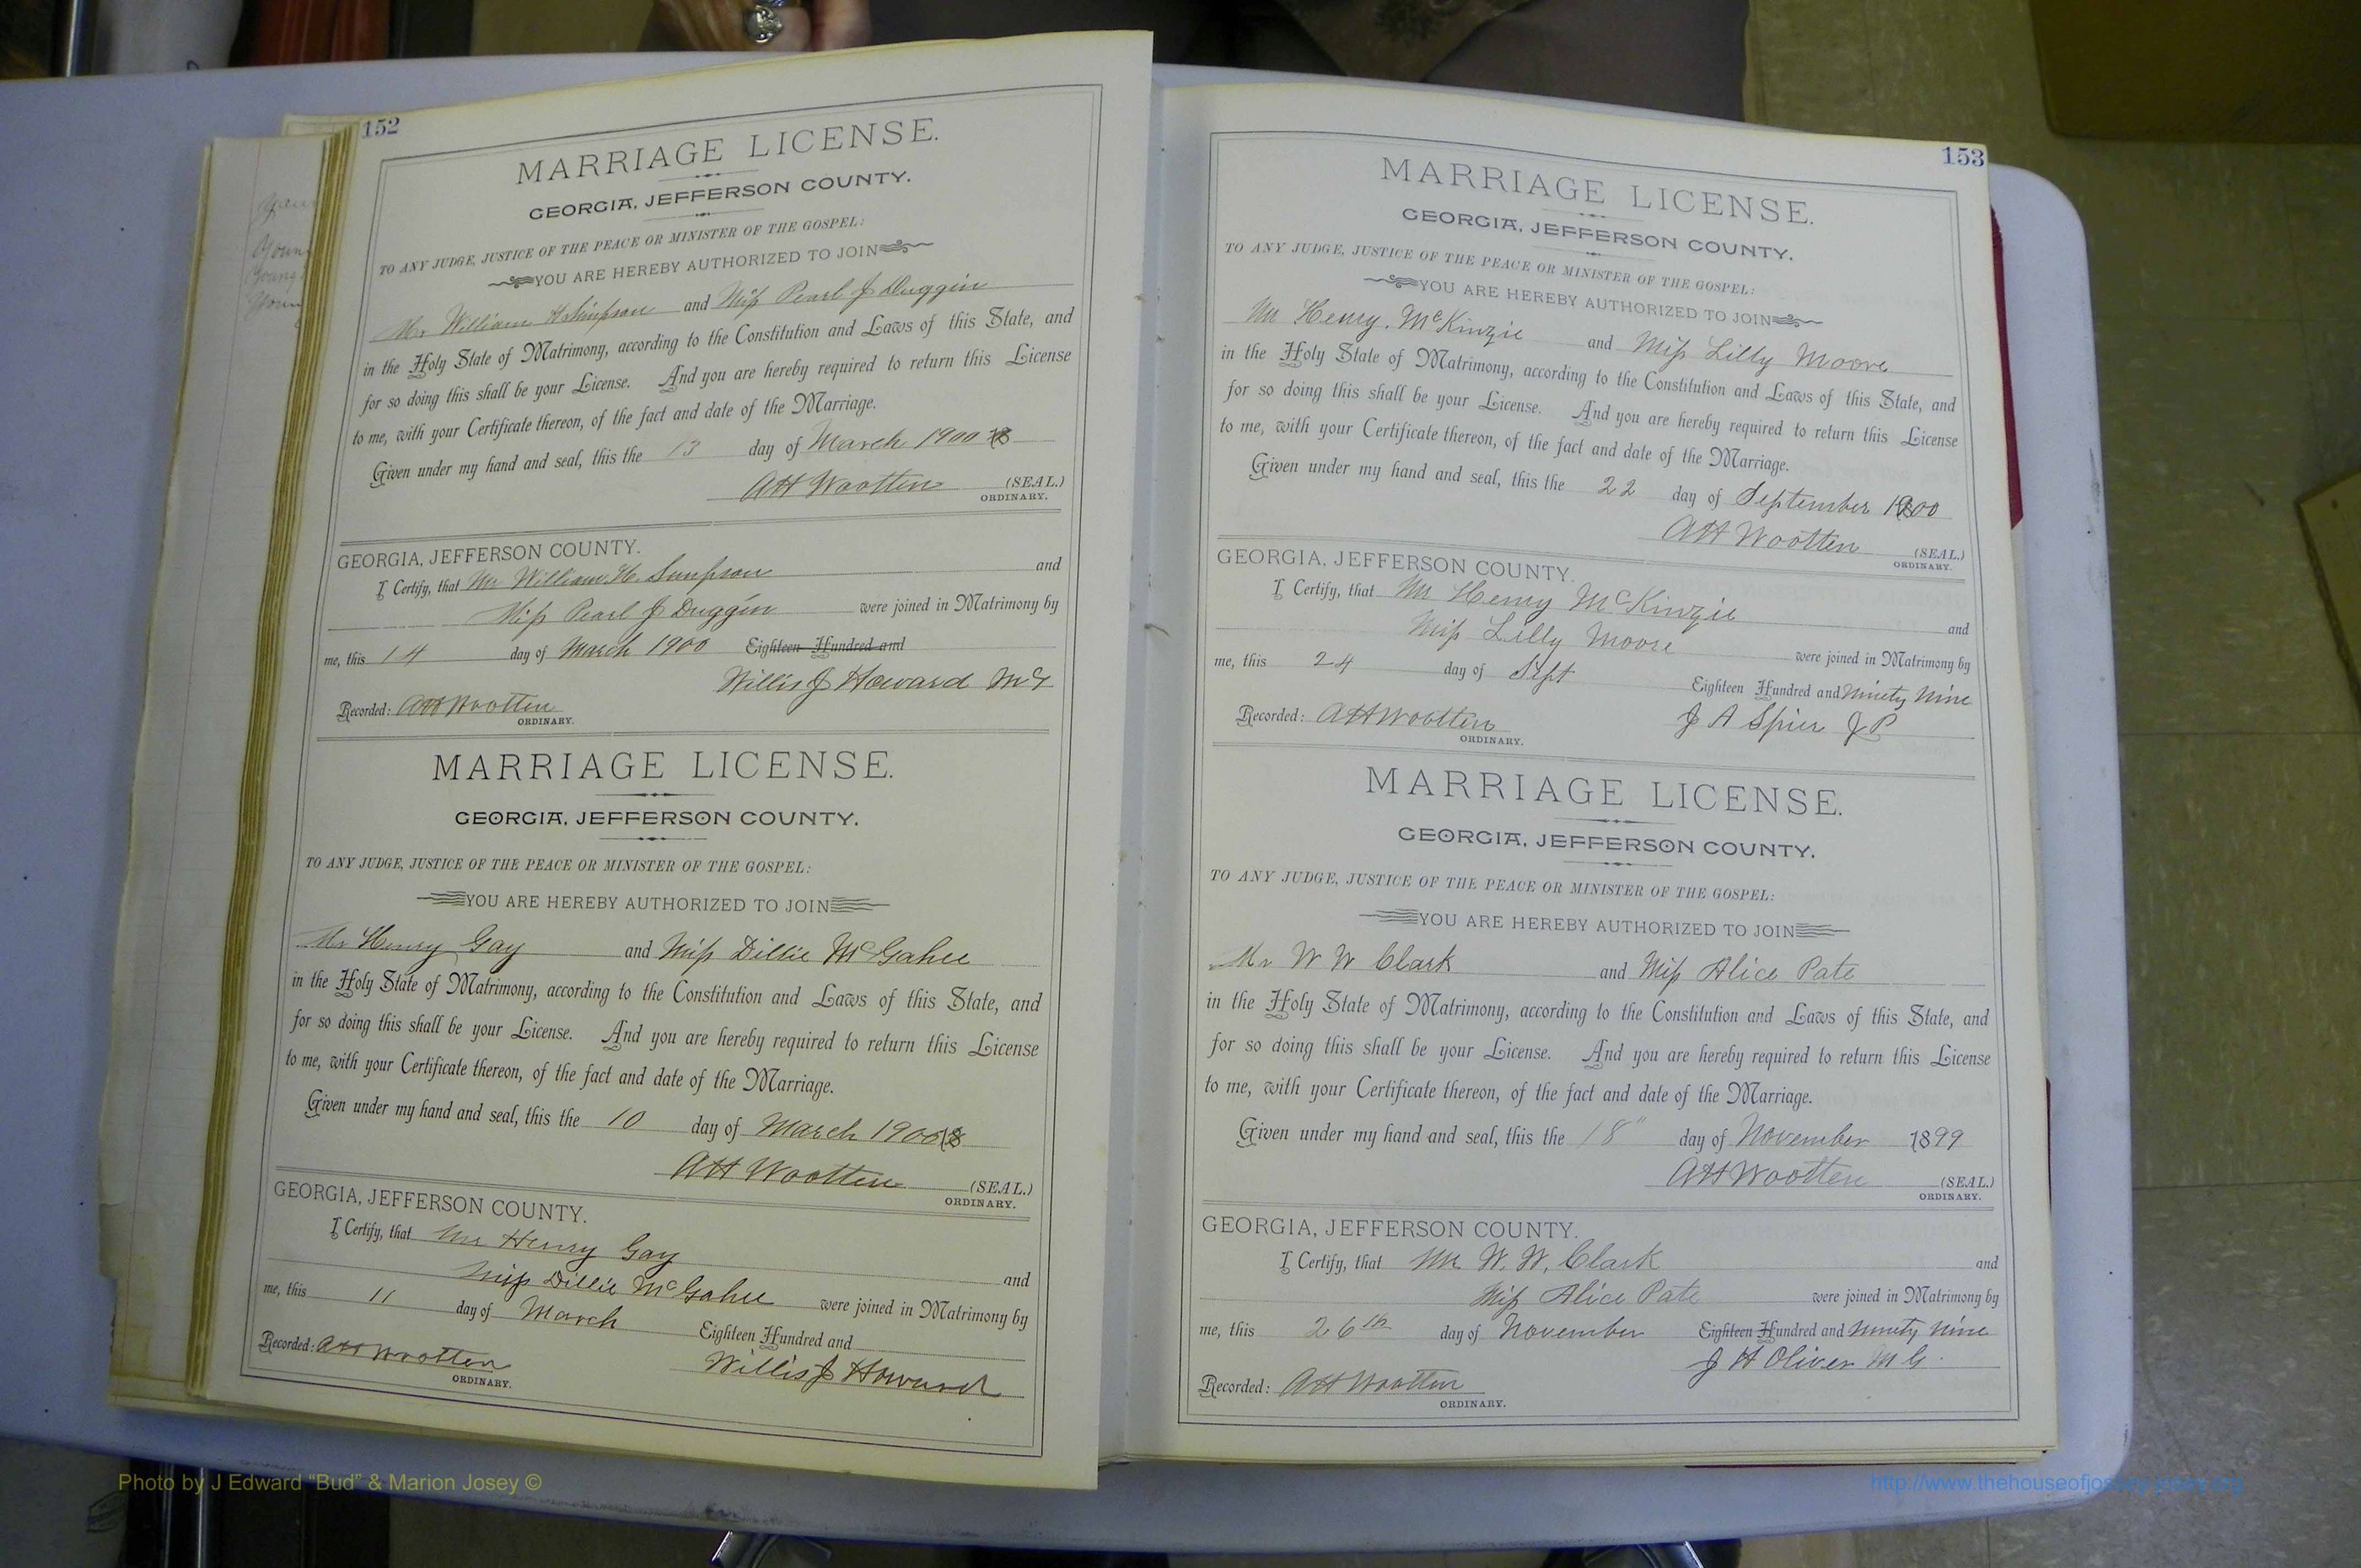 152
MARRIAGE LICENSE.
GEORGIA, JEFFERSON COUNTY.
TO ANY JUDGE, JUSTICE OF THE PEACE OR MINISTER OF THE GOSPEL:
YOU ARE HEREBY AUTHORIZED TO JOIN
Mr William H Simpson and Miss Pearl J Duggin
in the Holy State of Matrimony, according to the Constitution and Laws of this State, and
for so doing this shall be your License. And you are hereby required to return this License
to me, with your Certificate thereon, of the fact and date of the Marriage.
Given under my hand and seal, this the 13 day of March 1900
AH Wootten (SEAL.)
ORDINARY.
GEORGIA, JEFFERSON COUNTY.
I Certify, that Mr William H. Simpson and
Miss Pearl J Duggin were joined in Matrimony by
me, this 14 day of March 1900 Eighteen Hundred and
Willis J Howard MG
Recorded: AH Wootten
ORDINARY.
MARRIAGE LICENSE.
GEORGIA, JEFFERSON COUNTY.
TO ANY JUDGE, JUSTICE OF THE PEACE OR MINISTER OF THE GOSPEL:
YOU ARE HEREBY AUTHORIZED TO JOIN
Mr Henry Gay and Miss Dillie McGahee
in the Holy State of Matrimony, according to the Constitution and Laws of this State, and
for so doing this shall be your License. And you are hereby required to return this License
to me, with your Certificate thereon, of the fact and date of the Marriage.
Given under my hand and seal, this the 10 day of March 1900
AH Wootten (SEAL.)
ORDINARY.
GEORGIA, JEFFERSON COUNTY.
I Certify, that Mr Henry Gay and
Miss Dillie McGahee were joined in Matrimony by
me, this 11 day of March Eighteen Hundred and
Willis J Howard
Recorded: AH Wootten
ORDINARY.
153
MARRIAGE LICENSE.
GEORGIA, JEFFERSON COUNTY.
TO ANY JUDGE, JUSTICE OF THE PEACE OR MINISTER OF THE GOSPEL:
YOU ARE HEREBY AUTHORIZED TO JOIN
Mr Henry McKinzie and Miss Lilly Moore
in the Holy State of Matrimony, according to the Constitution and Laws of this State, and
for so doing this shall be your License. And you are hereby required to return this License
to me, with your Certificate thereon, of the fact and date of the Marriage.
Given under my hand and seal, this the 22 day of September 1900
AH Wootten (SEAL.)
ORDINARY.
GEORGIA, JEFFERSON COUNTY.
I Certify, that Mr Henry McKinzie and
Miss Lilly Moore were joined in Matrimony by
me, this 24 day of Sept Eighteen Hundred and Ninety Nine
J A Spier J P
Recorded: AH Wootten
ORDINARY.
MARRIAGE LICENSE.
GEORGIA, JEFFERSON COUNTY.
TO ANY JUDGE, JUSTICE OF THE PEACE OR MINISTER OF THE GOSPEL:
YOU ARE HEREBY AUTHORIZED TO JOIN
Mr W W Clark and Miss Alice Pate
in the Holy State of Matrimony, according to the Constitution and Laws of this State, and
for so doing this shall be your License. And you are hereby required to return this License
to me, with your Certificate thereon, of the fact and date of the Marriage.
Given under my hand and seal, this the 18" day of November 1899
AH Wootten (SEAL.)
ORDINARY.
GEORGIA, JEFFERSON COUNTY.
I Certify, that Mr W. W. Clark and
Miss Alice Pate were joined in Matrimony by
me, this 26th day of November Eighteen Hundred and Ninety Nine
J H Oliver M G.
Recorded: AH Wootten
ORDINARY.
Photo by J Edward “Bud” & Marion Josey ©